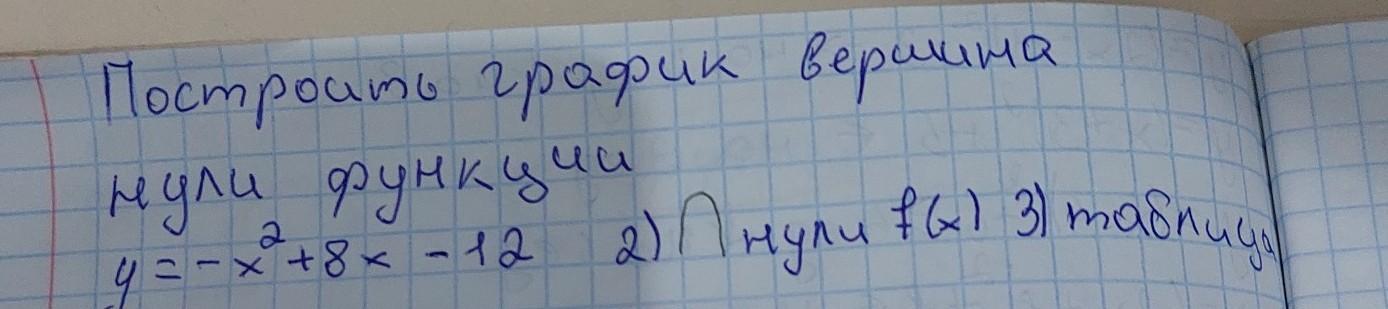 Построить график вершина
нули функции
y = -x² + 8x - 12 2) ∩ нули f(x) 3) таблица